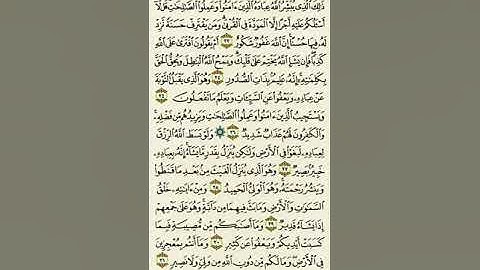 ذَٰلِكَ ٱلَّذِى يُبَشِّرُ ٱللَّهُ عِبَادَهُ ٱلَّذِينَ ءَامَنُوا۟ وَعَمِلُوا۟ ٱلصَّٰلِحَٰتِ قُل لَّآ
أَسْـَٔلُكُمْ عَلَيْهِ أَجْرًا إِلَّا ٱلْمَوَدَّةَ فِى ٱلْقُرْبَىٰ وَمَن يَقْتَرِفْ حَسَنَةً نَّزِدْ
لَهُۥ فِيهَا حُسْنًا إِنَّ ٱللَّهَ غَفُورٌ شَكُورٌ ٢٣ أَمْ يَقُولُونَ ٱفْتَرَىٰ عَلَى ٱللَّهِ
كَذِبًا فَإِن يَشَإِ ٱللَّهُ يَخْتِمْ عَلَىٰ قَلْبِكَ وَيَمْحُ ٱللَّهُ ٱلْبَٰطِلَ وَيُحِقُّ ٱلْحَقَّ
بِكَلِمَٰتِهِۦٓ إِنَّهُۥ عَلِيمٌۢ بِذَاتِ ٱلصُّدُورِ ٢٤ وَهُوَ ٱلَّذِى يَقْبَلُ ٱلتَّوْبَةَ
عَنْ عِبَادِهِۦ وَيَعْفُوا۟ عَنِ ٱلسَّيِّـَٔاتِ وَيَعْلَمُ مَا تَفْعَلُونَ ٢٥
وَيَسْتَجِيبُ ٱلَّذِينَ ءَامَنُوا۟ وَعَمِلُوا۟ ٱلصَّٰلِحَٰتِ وَيَزِيدُهُم مِّن فَضْلِهِۦ
وَٱلْكَٰفِرُونَ لَهُمْ عَذَابٌ شَدِيدٌ ٢٦ وَلَوْ بَسَطَ ٱللَّهُ ٱلرِّزْقَ
لِعِبَادِهِۦ لَبَغَوْا۟ فِى ٱلْأَرْضِ وَلَٰكِن يُنَزِّلُ بِقَدَرٍ مَّا يَشَآءُ إِنَّهُۥ بِعِبَادِهِۦ
خَبِيرٌۢ بَصِيرٌ ٢٧ وَهُوَ ٱلَّذِى يُنَزِّلُ ٱلْغَيْثَ مِنۢ بَعْدِ مَا قَنَطُوا۟
وَيَنشُرُ رَحْمَتَهُۥ وَهُوَ ٱلْوَلِىُّ ٱلْحَمِيدُ ٢٨ وَمِنْ ءَايَٰتِهِۦ خَلْقُ
ٱلسَّمَٰوَٰتِ وَٱلْأَرْضِ وَمَا بَثَّ فِيهِمَا مِن دَآبَّةٍ وَهُوَ عَلَىٰ جَمْعِهِمْ
إِذَا يَشَآءُ قَدِيرٌ ٢٩ وَمَآ أَصَٰبَكُم مِّن مُّصِيبَةٍ فَبِمَا
كَسَبَتْ أَيْدِيكُمْ وَيَعْفُوا۟ عَن كَثِيرٍ ٣٠ وَمَآ أَنتُم بِمُعْجِزِينَ
فِى ٱلْأَرْضِ وَمَا لَكُم مِّن دُونِ ٱللَّهِ مِن وَلِىٍّ وَلَا نَصِيرٍ ٣١